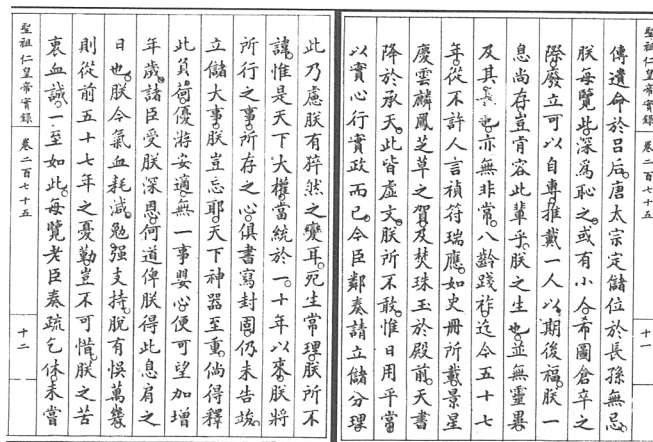 聖祖仁皇帝實錄 卷二百七十五 十一
傳遺命於呂后。唐太宗定儲位於長孫無忌。
朕每覽此。深爲恥之。或有小人。希圖倉卒之
際。廢立可以自專。推戴一人。以期後福。朕一
息尚存。豈肯容此輩乎。朕之生也。並無靈異。
及其長也。亦無非常。八齡踐祚。迄今五十七
年。從不許人言禎符瑞應。如史冊所載。景星
慶雲。麟鳳芝草之賀。及焚珠玉於殿前。天書
降於承天。此皆虛文。朕所不敢。惟日用平常。
以實心行實政而已。今臣鄰奏請立儲分理。
此乃慮朕有猝然之變耳。死生常理。朕所不
諱。惟是天下大權。當統於一。十年以來。朕將
所行之事。所存之心。俱書寫封固。仍未告竣。
立儲大事。朕豈忘耶。天下神器至重。倘得釋
此負荷。優游安適。無一事嬰心。便可望加增
年歲。諸臣受朕深恩。何道俾朕得此息肩之
日也。朕今氣血耗減。勉强支持。脫有悞萬幾。
則從前五十七年之憂勤。豈不可惜。朕之苦
衷血誠。一至如此。每覽老臣奏疏乞休。未嘗
聖祖仁皇帝實錄 卷二百七十五 十二